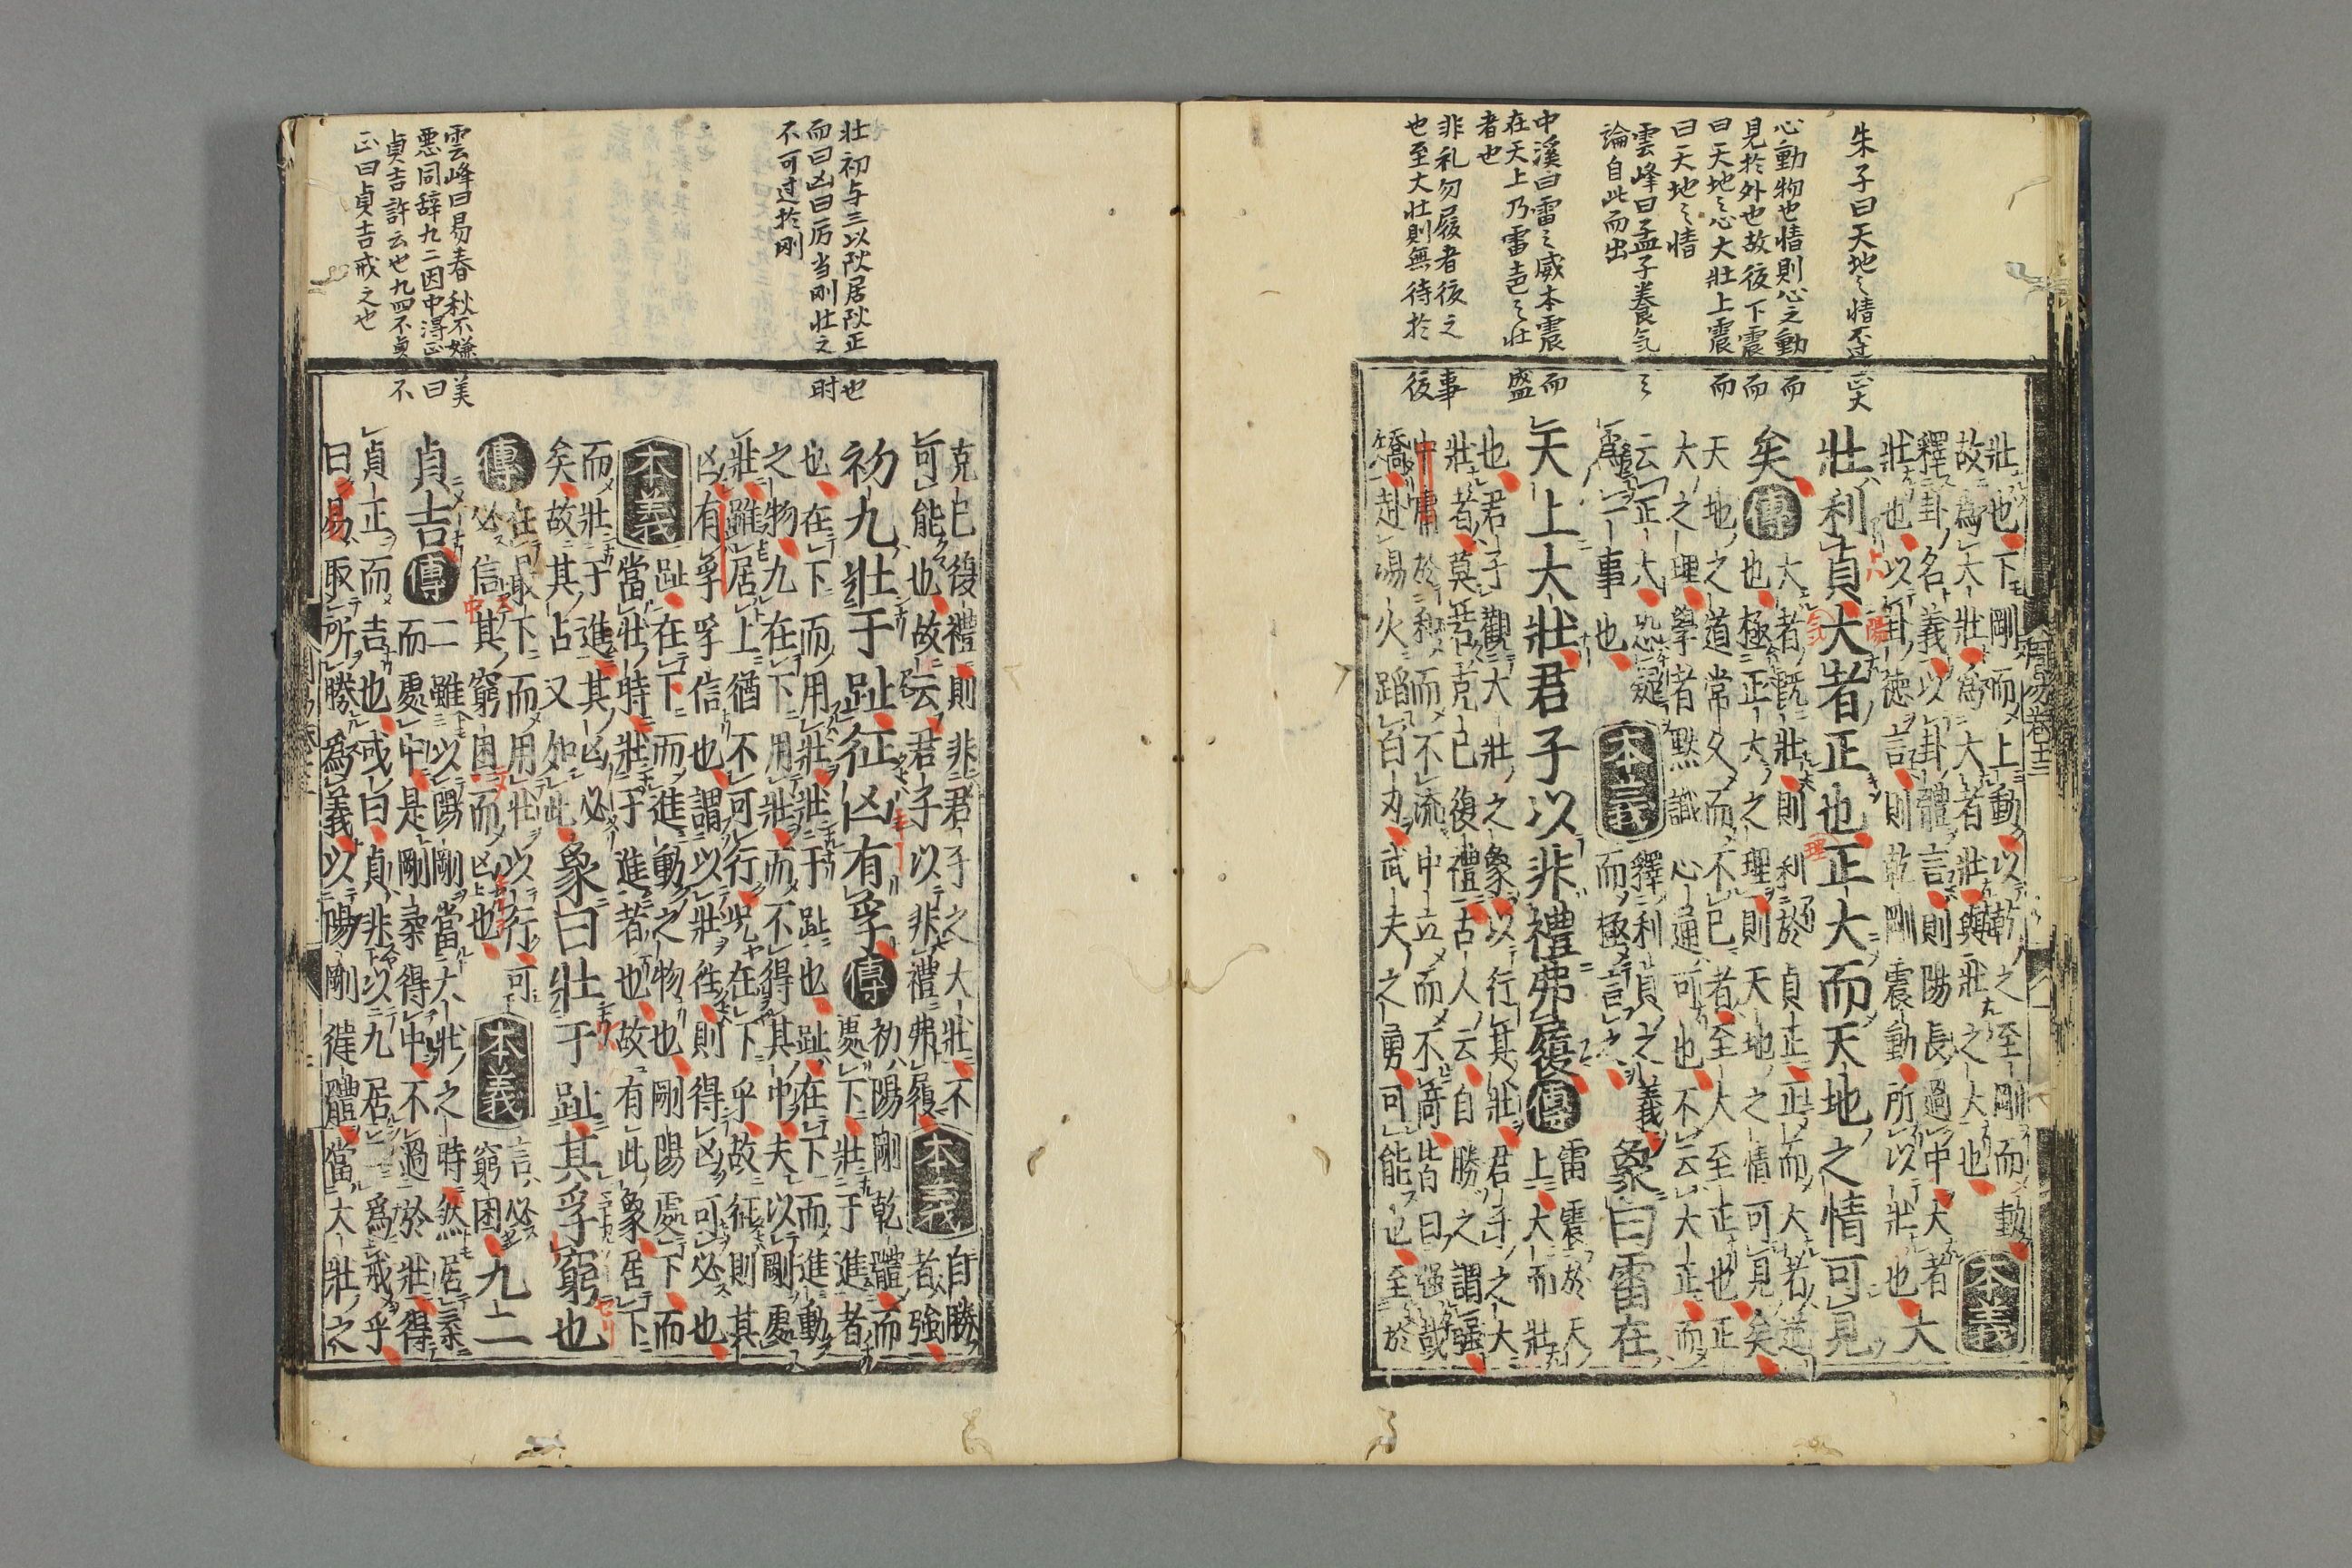 朱子曰天地之情不过正大
心動物也情則心之動而
見於外也故復下震而
曰天地之心大壯上震而
曰天地之情
雲峰曰孟子養気之
論自此而出
中溪曰雷之威本震而
在天上乃雷声之壮盛
者也
非礼勿履者復之事
也至大壮則無待於復
壯也下剛而上動以乾之至剛而動
故爲大壯爲大者壯與壯之大也
本義
釋卦名義以卦體言則陽長過中大者
壯也以卦德言則乾剛震動所以壯也
大
壯利貞大者正也正大而天地之情可見
矣
傳
大者既壯則利於貞正正而大者道
也極正大之理則天地之情可見矣
天地之道常久而不已者至大至正也正
大之理學者黙識心通可也不云大正而
云正大恐疑
爲一事也
本義
釋利貞之義
而極言之
象曰雷在
天上大壯君子以非禮弗履
傳
雷震於天
上大而壯
也君子觀大壯之象以行其壯君子之大
壯者莫若克己復禮古人云自勝之謂强
中庸於和而不流中立而不倚皆曰强哉
矯赴湯火蹈白刃武夫之勇可能也至於
壮初与三以阳居阳正也
而曰凶曰厉当刚壮之时
不可过於刚
雲峰曰易春秋不嫌美
悪同辞九二因中得正曰
貞吉許云也九四不貞不
正曰貞吉戒之也
克己復禮則非君子之大壯不
可能也故云君子以非禮弗履
本義
自勝
者強
初九壯于趾征凶有孚
傳
初陽剛乾體而
處下壯于進者
也在下而用壯壯于趾也趾在下而進動
之物九在下用壯而不得其中夫以剛處
壯雖居上猶不可行况在下乎故征則其
凶有孚孚信也謂以壯徃則得凶可必也
本義
趾在下而進動之物也剛陽處下而
當壯時壯于進者也故有此象居下
而壯于進其凶必
矣故其占又如此
象曰壯于趾其孚窮也
傳
在最下而用壯以行可
必信其窮困而凶也
本義
言必
窮困
九二
貞吉
傳
二雖以陽剛當大壯之時然居柔
而處中是剛柔得中不過於壯得
貞正而吉也或曰貞非以九居二爲戒乎
曰易取所勝爲義以陽剛健體當大壯之